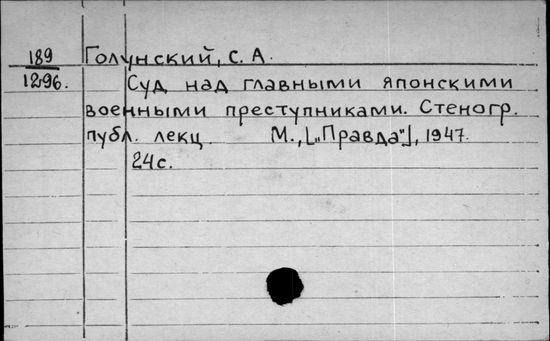 189 Голунский, С. А.
1296. Суд над главными японскими
военными преступниками. Стеногр.
публ. лекц. М., [„Правда"], 1947.
24с.